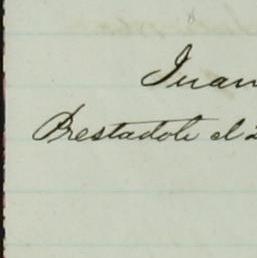 Juan
Prestadole el 2